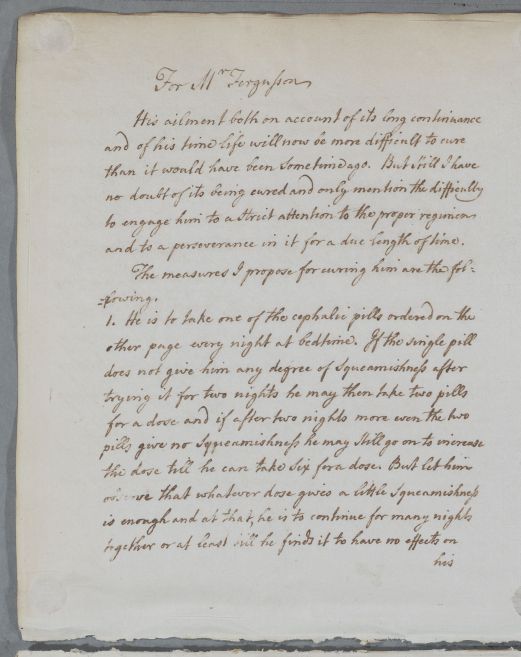 For Mr Fergusson
His ailment both on account of its long continuance
and of his time life will now be more difficult to cure
than it would have been sometime ago. But still I have
no doubt of its being cured and only mention the difficulty
to engage him to a Strict attention to the proper regimen
and to a perseverance in it for a due length of time.
The measures I propose for curing him are the fol-
-lowing.
1. He is to take one of the cephalic pills ordered on the
other page every night at bedtime. If the single pill
does not give him any degree of Squeamishness after
trying it for two nights he may then take two pills
for a dose and if after two nights more even the two
pills give no Squeamishness he may still go on to increase
the dose till he can take Six for a dose. But let him
observe that whatever dose gives a little Squeamishness
is enough and at that, he is to continue for many nights
together or at least till he finds it to have no effects on
his